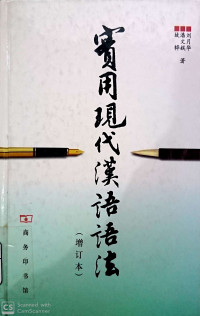 刘月华
潘文娱
故韡
著
實用現代漢語語法
（增订本）
商务印书馆
CS
Scanned with
CamScanner